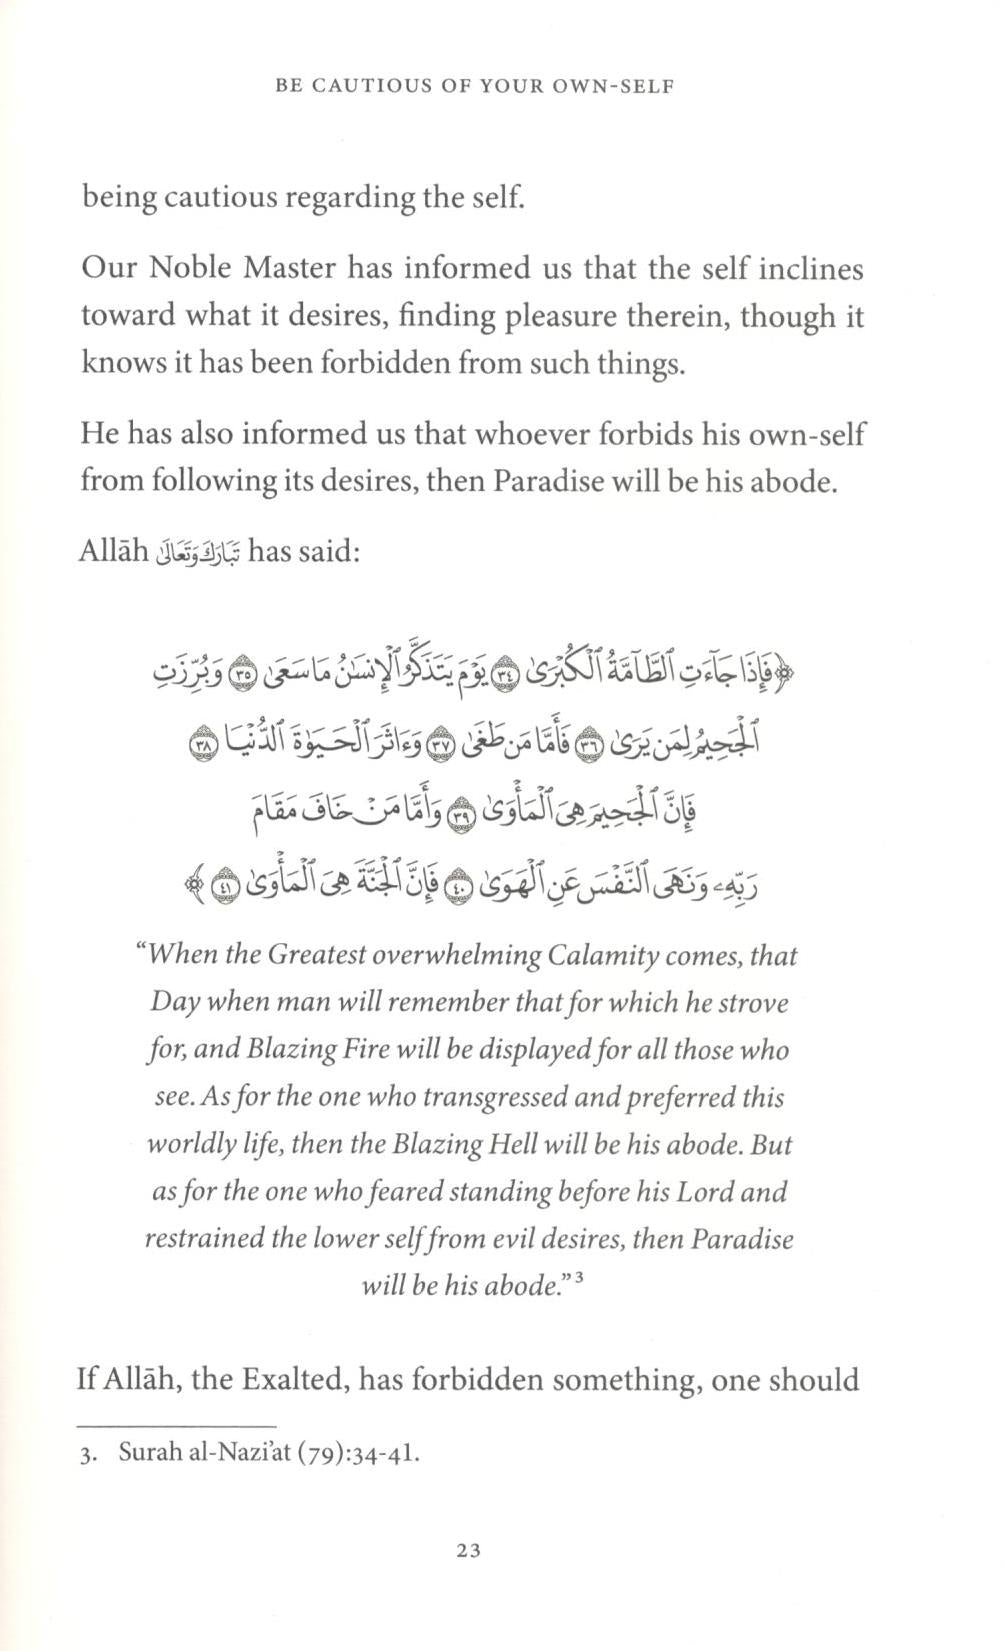 BE CAUTIOUS OF YOUR OWN-SELF
being cautious regarding the self.
Our Noble Master has informed us that the self inclines
toward what it desires, finding pleasure therein, though it
knows it has been forbidden from such things.
He has also informed us that whoever forbids his own-self
from following its desires, then Paradise will be his abode.
Allāh تَبَارَكَ وَتَعَالَىٰ has said:
﴿فَإِذَا جَآءَتِ ٱلطَّآمَّةُ ٱلْكُبْرَىٰ ٣٤ يَوْمَ يَتَذَكَّرُ ٱلْإِنسَٰنُ مَا سَعَىٰ ٣٥ وَبُرِّزَتِ
ٱلْجَحِيمُ لِمَن يَرَىٰ ٣٦ فَأَمَّا مَن طَغَىٰ ٣٧ وَءَاثَرَ ٱلْحَيَوٰةَ ٱلدُّنْيَا ٣٨
فَإِنَّ ٱلْجَحِيمَ هِىَ ٱلْمَأْوَىٰ ٣٩ وَأَمَّا مَنْ خَافَ مَقَامَ
رَبِّهِۦ وَنَهَى ٱلنَّفْسَ عَنِ ٱلْهَوَىٰ ٤٠ فَإِنَّ ٱلْجَنَّةَ هِىَ ٱلْمَأْوَىٰ ٤١﴾
“When the Greatest overwhelming Calamity comes, that
Day when man will remember that for which he strove
for, and Blazing Fire will be displayed for all those who
see. As for the one who transgressed and preferred this
worldly life, then the Blazing Hell will be his abode. But
as for the one who feared standing before his Lord and
restrained the lower self from evil desires, then Paradise
will be his abode.”3
If Allāh, the Exalted, has forbidden something, one should
3. Surah al-Nazi’at (79):34-41.
23